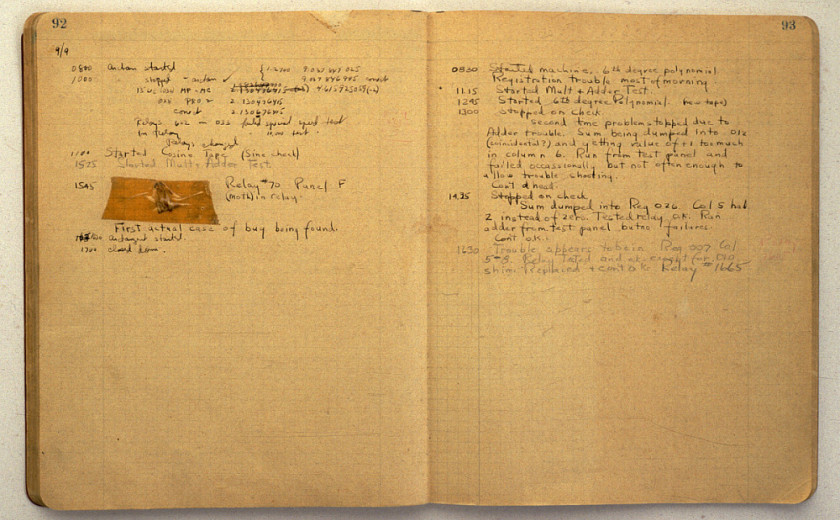 92
9/9
0800 started
1000 stopped
13'UC MP - MC
033 PRO 2 2.130476415
2.130676415
Relays in 033 failed special speed test
in relay test
Relays changed
1100 Started Cosine Tape (Sine check)
1525 Started Mult + Adder Test
1545 Relay #70 Panel F
(moth) in relay.
First actual case of bug being found.
started.
1700 closed down.
93
0830 Started machine. 6th degree polynomial
Registration trouble most of morning.
11.15 Started Mult & Adder Test
1245 Started 6th degree Polynomial. (new tape)
1300 Stopped on check
Second time problem stopped due to
Adder trouble. Sum being dumped into 012
(coincidental?) and getting value of +1 too much
in column 6. Run from test panel and
failed occassionally but not often enough to
allow trouble shooting.
Stopped on check
Sum dumped into Reg 026. Col 5 had
2 instead of zero. Tested relay o.k. Run
adder from test panel but no failures.
Cont o.k.
1630 Trouble appears to be in Reg 007 Col
Relay tested and ok except for
replaced + cont o.k. Relay #1665